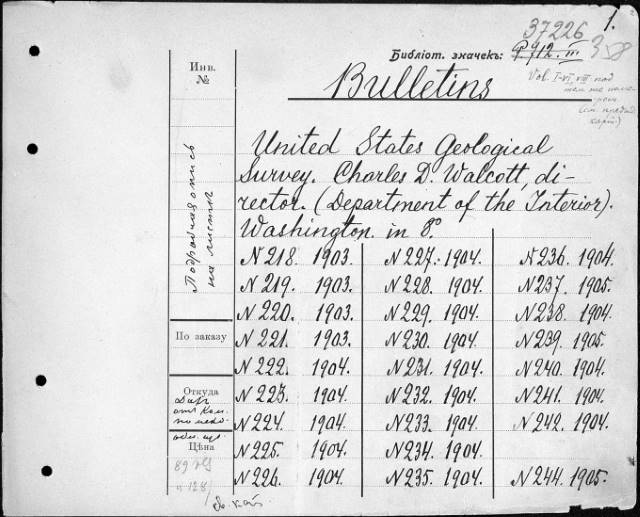 1.
37226
Библіот. значекъ: P.912. III 358
Vol. I-VI, VII под
тем же номе-
ром
Инв.
№
Bulletins
Подробная опись
на листкѣ
United States Geological
Survey. Charles D. Walcott, di-
rector. (Department of the Interior).
Washington. in 8.°
N 218. 1903. N 227. 1904. N 236. 1904.
N 219. 1903. N 228. 1904. N 237. 1905.
N 220. 1903. N 229. 1904. N 238. 1904.
По заказу
N 221. 1903. N 230. 1904. N 239. 1905.
N 222. 1904. N 231. 1904. N 240. 1904.
Откуда
N 223. 1904. N 232. 1904. N 241. 1904.
N 224. 1904. N 233. 1904. N 242. 1904.
Цѣна
N 225. 1904. N 234. 1904.
N 226. 1904. N 235. 1904. N 244. 1905.